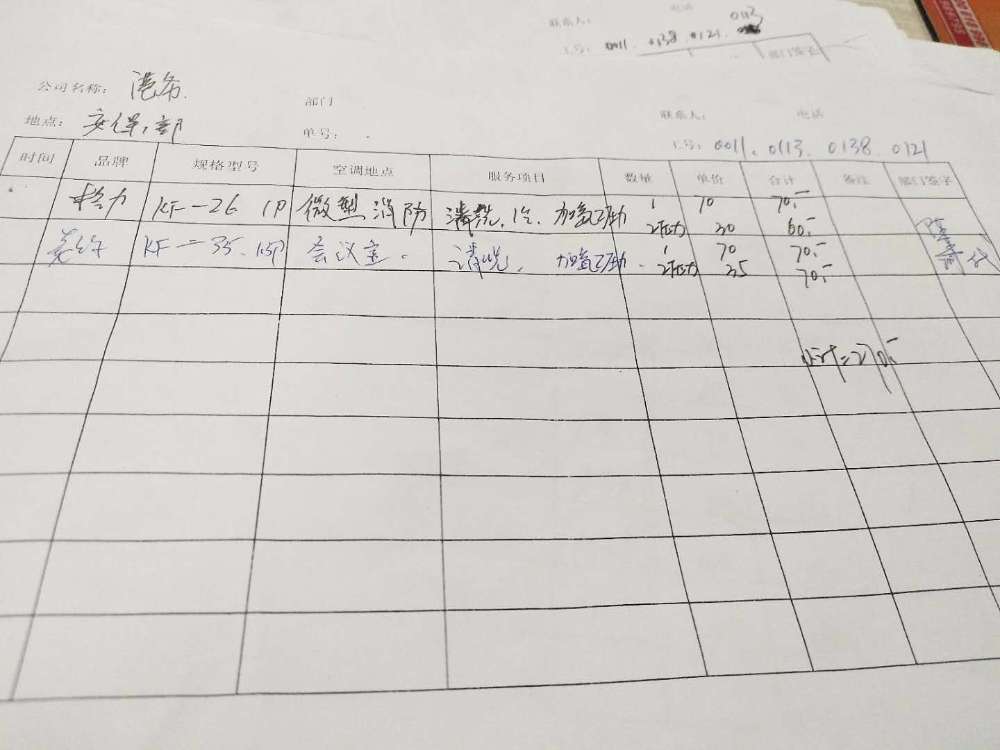 联系人: 电话 0113
工号: 0011. 0138. 0121.
部门签字
公司名称: 港务.
部门
联系人: 电话
地点: 安保部
单号:
工号: 0011. 0113. 0138. 0121
时间 品牌 规格型号 空调地点 服务项目 数量 单价 合计 备注 部门签字
格力 KF-26 1P 微型消防 清洗, 加氟 1 70 70.-
30 60.-
KF-35. 会议室. 清洗, 加氟 1 70 70.-
35 70.-
=270.-